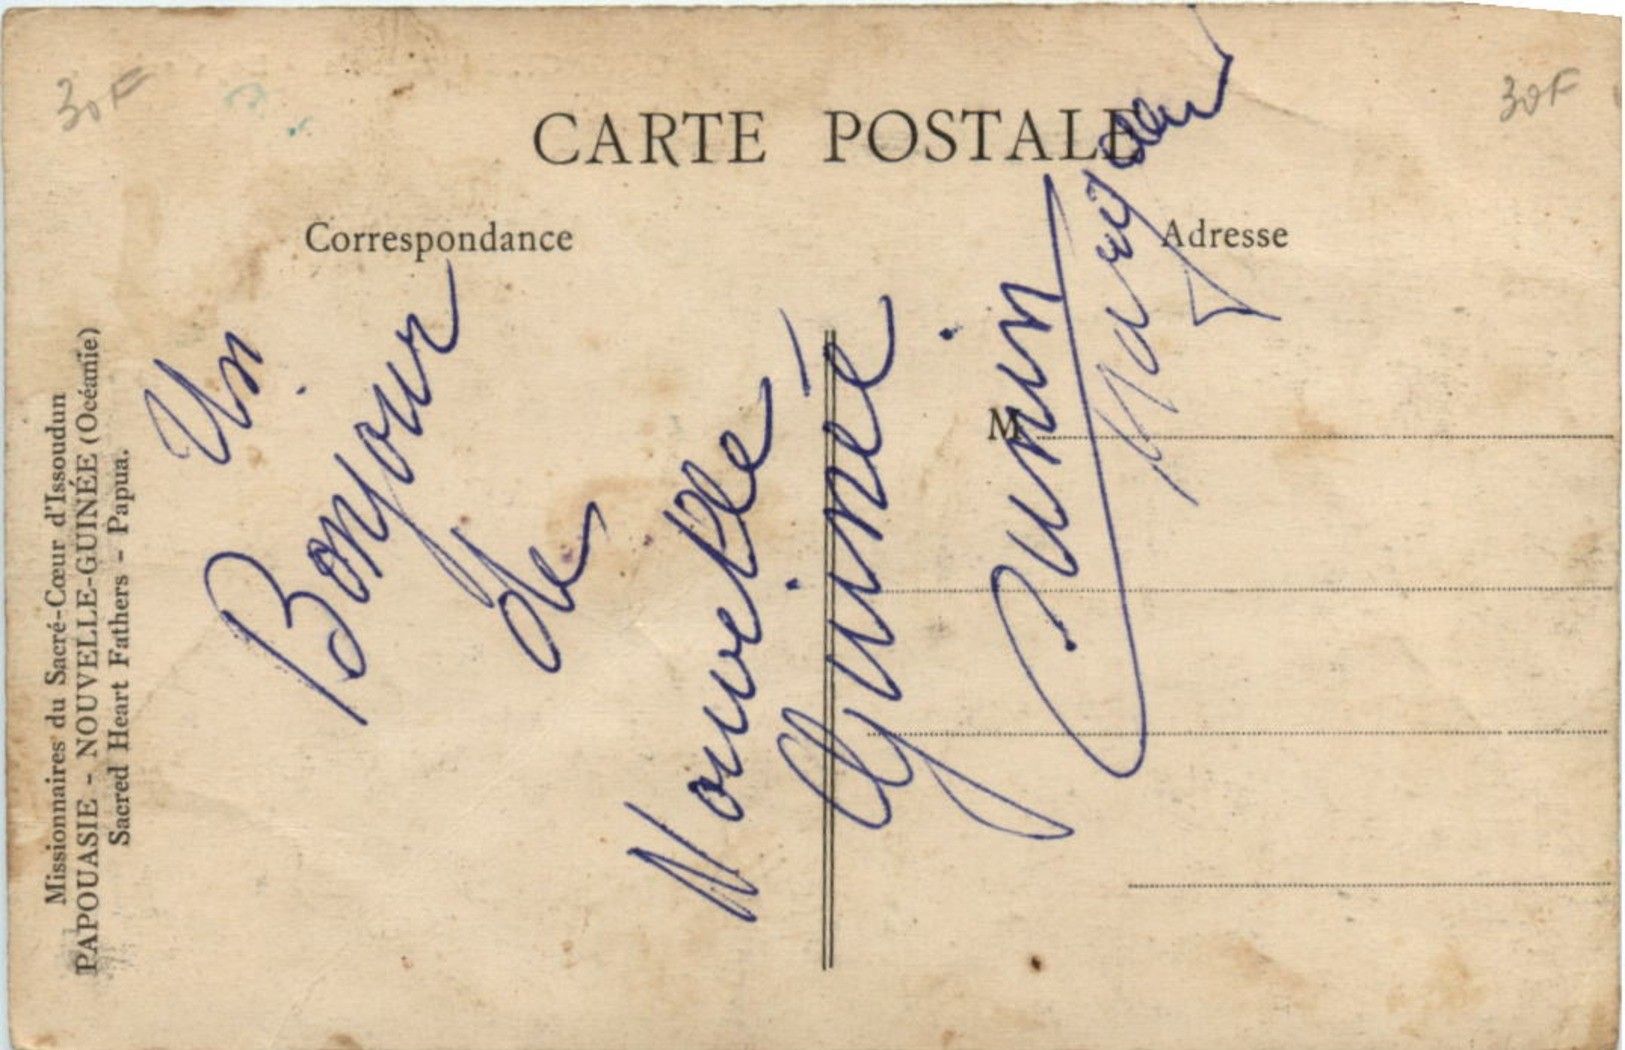 30F
30F
CARTE POSTALE
Correspondance
Adresse
Missionnaires du Sacré-Cœur d'Issoudun
PAPOUASIE - NOUVELLE-GUINÉE (Océanie)
Sacred Heart Fathers - Papua.
Un
Bonjour
de
Nouvelle
Guinée
M